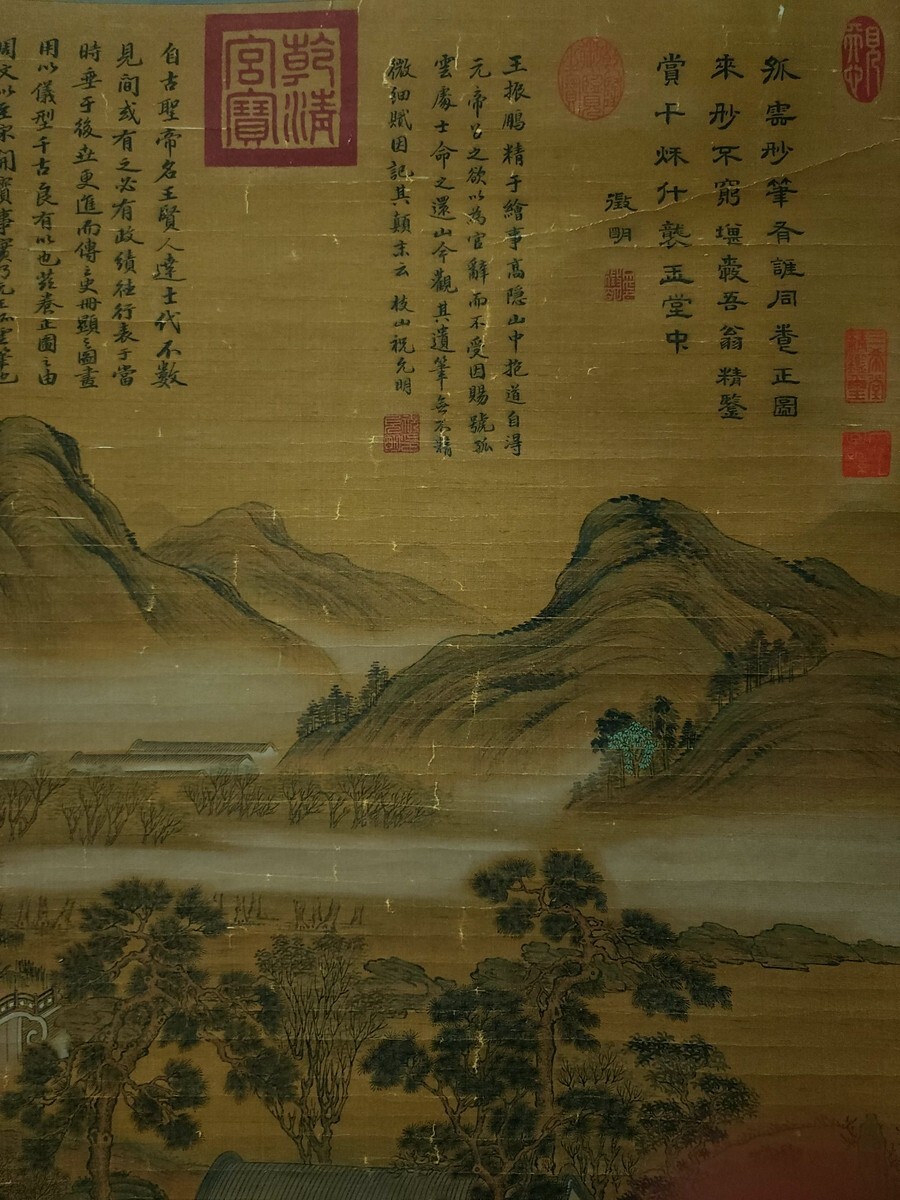 孤雲妙筆有誰同養正圖
來妙不窮堪羨吾翁精鑒
賞千秋什襲玉堂中
徵明
王振鵬精于繪事高隐山中抱道自得
元帝召之欲以為官辭而不受因賜號孤
雲處士命之還山今觀其遺筆無不精
微細賦因記其顛末云 枝山祝允明
乾清
宮寶
自古聖帝名王賢人達士代不數
見間或有之必有政績往行表于當
時垂于後世更進而傳之史冊顯之圖畫
用以儀型千古良有以也茲養正圖之由
周文以至宋開寶事實乃元王孤雲筆也